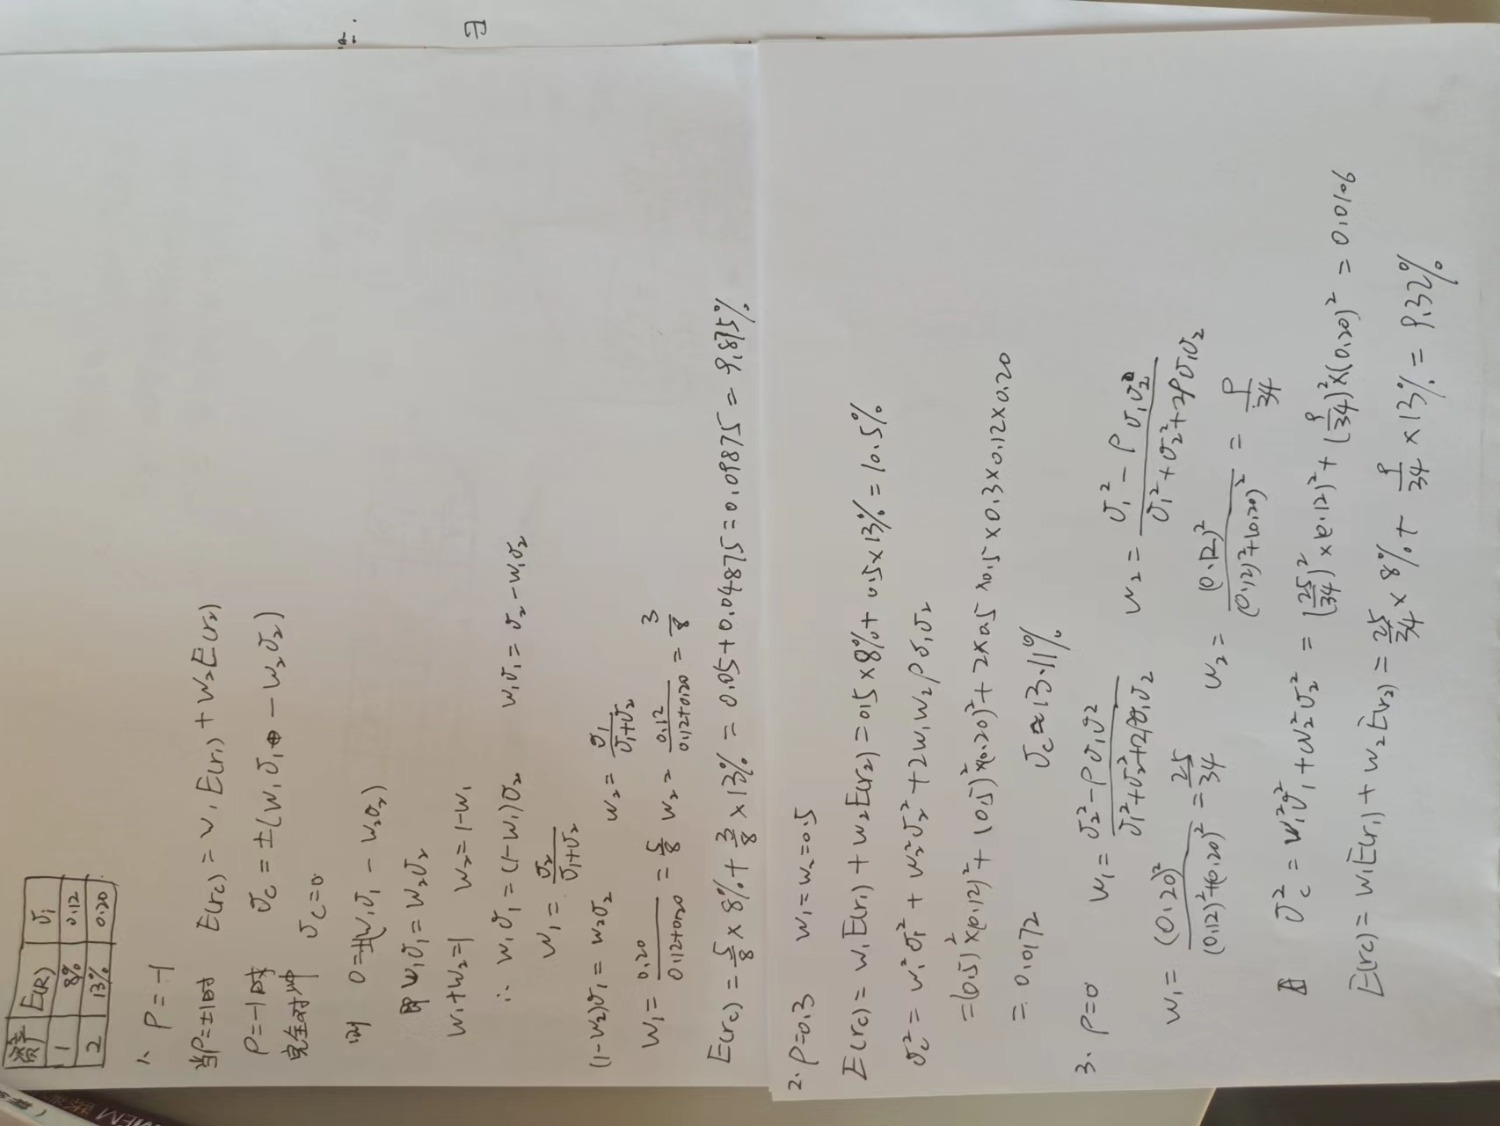 资产 E(R) σi
1 8% 0.12
2 13% 0.20
1. ρ=-1
当ρ=±1时 E(rc) = w1 E(r1) + w2 E(r2)
ρ=-1时 σc = ±(w1σ1 - w2σ2)
完全对冲 σc=0
则 0=±(w1σ1 - w2σ2)
即 w1σ1 = w2σ2
w1+w2=1 w2=1-w1
∴ w1σ1 = (1-w1)σ2 w1σ1 = σ2-w1σ2
w1 = σ2/(σ1+σ2)
(1-w2)σ1 = w2σ2 w2 = σ1/(σ1+σ2)
w1 = 0.20/(0.12+0.20) = 5/8 w2 = 0.12/(0.12+0.20) = 3/8
E(rc) = 5/8 × 8% + 3/8 × 13% = 0.05+0.04875 = 0.09875 = 9.875%
2. ρ=0.3 w1=w2=0.5
E(rc) = w1 E(r1) + w2 E(r2) = 0.5×8% + 0.5×13% = 10.5%
σc² = w1²σ1² + w2²σ2² + 2w1w2ρσ1σ2
=(0.5)²×(0.12)² + (0.5)²×(0.20)² + 2×0.5×0.5×0.3×0.12×0.20
= 0.0172 σc≈13.11%
3. ρ=0 w1 = (σ2²-ρσ1σ2)/(σ1²+σ2²+2ρσ1σ2) w2 = (σ1²-ρσ1σ2)/(σ1²+σ2²+2ρσ1σ2)
w1 = (0.20)²/((0.12)²+(0.20)²) = 25/34 w2 = (0.12)²/((0.12)²+(0.20)²) = 9/34
σc² = w1²σ1² + w2²σ2² = (25/34)²×(0.12)² + (9/34)²×(0.20)² = 0.0106
E(rc) = w1E(r1) + w2E(r2) = 25/34 × 8% + 9/34 × 13% = 9.32%